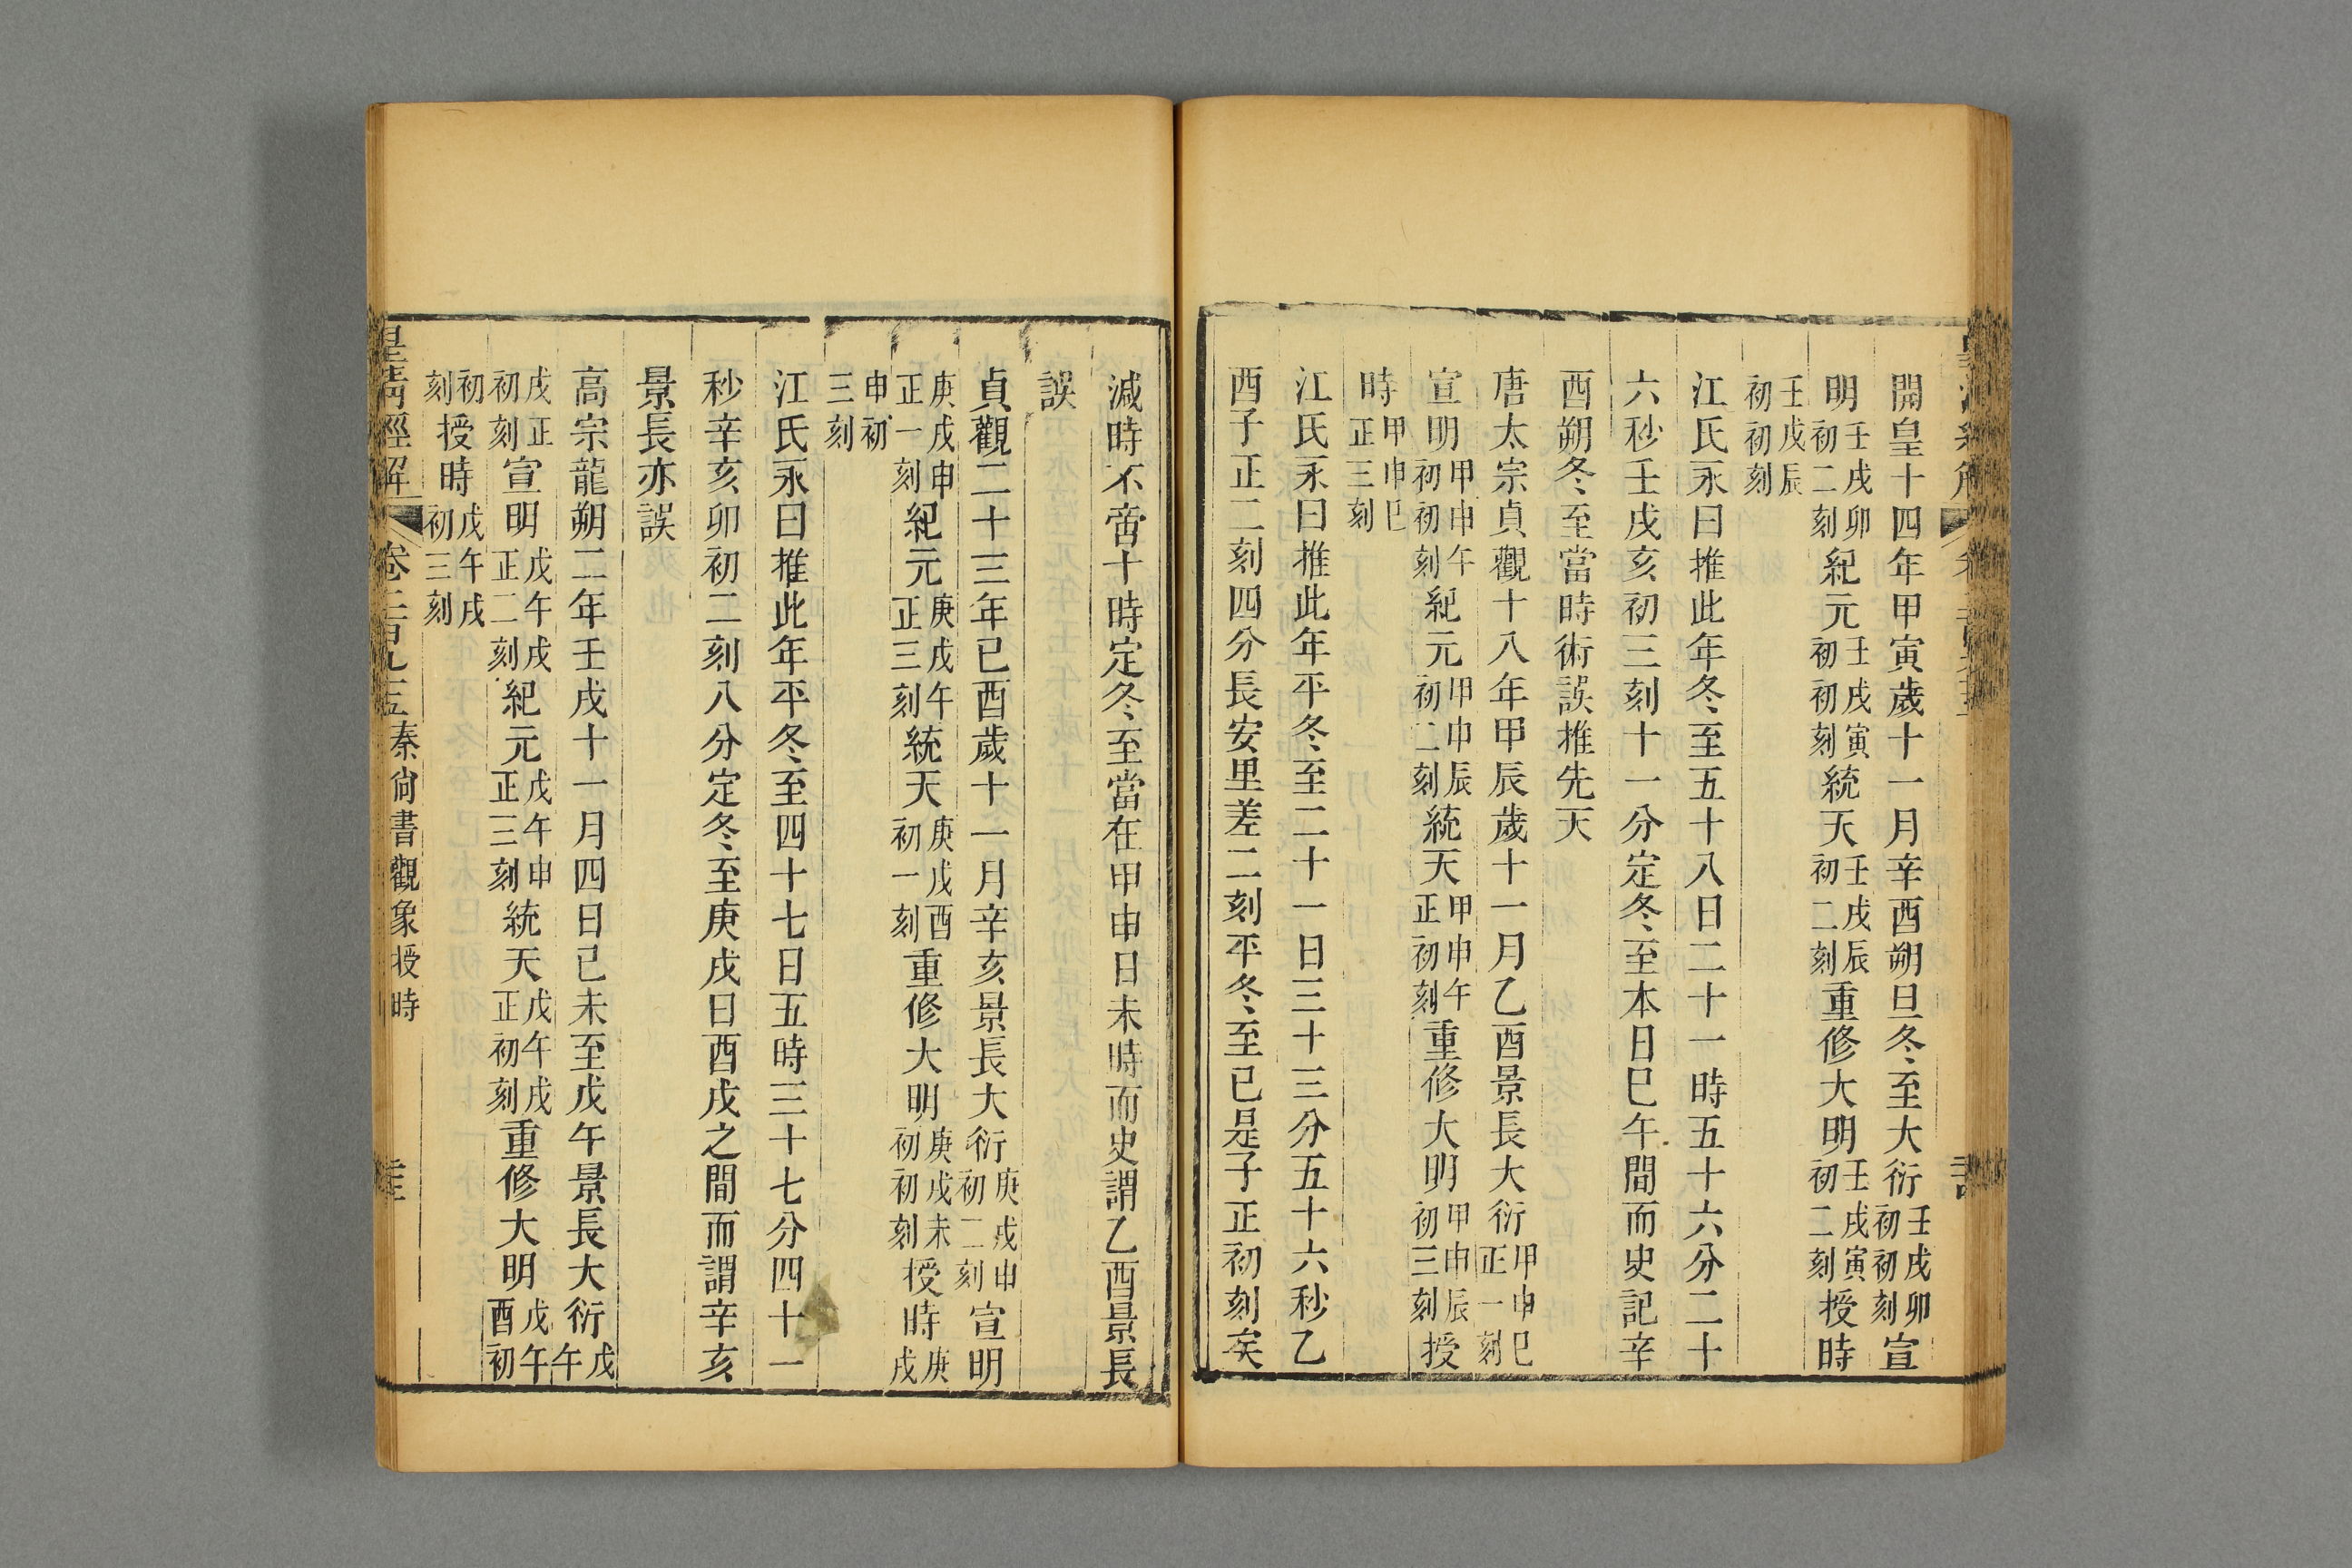 開皇十四年甲寅歲十一月辛酉朔旦冬至大衍壬戌卯初初刻宣
明壬戌卯初二刻紀元壬戌寅初初刻統天壬戌辰初二刻重修大明壬戌寅初二刻授時
壬戌辰初初刻
江氏永曰推此年冬至五十八日二十一時五十六分二十
六秒壬戌亥初三刻十一分定冬至本日巳午間而史記辛
酉朔冬至當時術誤推先天
唐太宗貞觀十八年甲辰歲十一月乙酉景長大衍甲申巳正一刻
宣明甲申午初初刻紀元甲申辰初二刻統天甲申午正初刻重修大明甲申辰初三刻授
時甲申巳正三刻
江氏永曰推此年平冬至二十一日三十三分五十六秒乙
酉子正二刻四分長安里差二刻平冬至已是子正初刻矣
減時不啻十時定冬至當在甲申日未時而史謂乙酉景長
誤
貞觀二十三年己酉歲十一月辛亥景長大衍庚戌申初二刻宣明
庚戌申正一刻紀元庚戌午正三刻統天庚戌酉初一刻重修大明庚戌未初初刻授時庚戌
申初三刻
江氏永曰推此年平冬至四十七日五時三十七分四十一
秒辛亥卯初二刻八分定冬至庚戌日酉戌之間而謂辛亥
景長亦誤
高宗龍朔二年壬戌十一月四日己未至戊午景長大衍戊午
戌正初刻宣明戊午戌正二刻紀元戊午申正三刻統天戊午戌正初刻重修大明戊午酉初
初刻授時戊午戌初三刻
皇清經解 卷二百九十五 秦尚書觀象授時